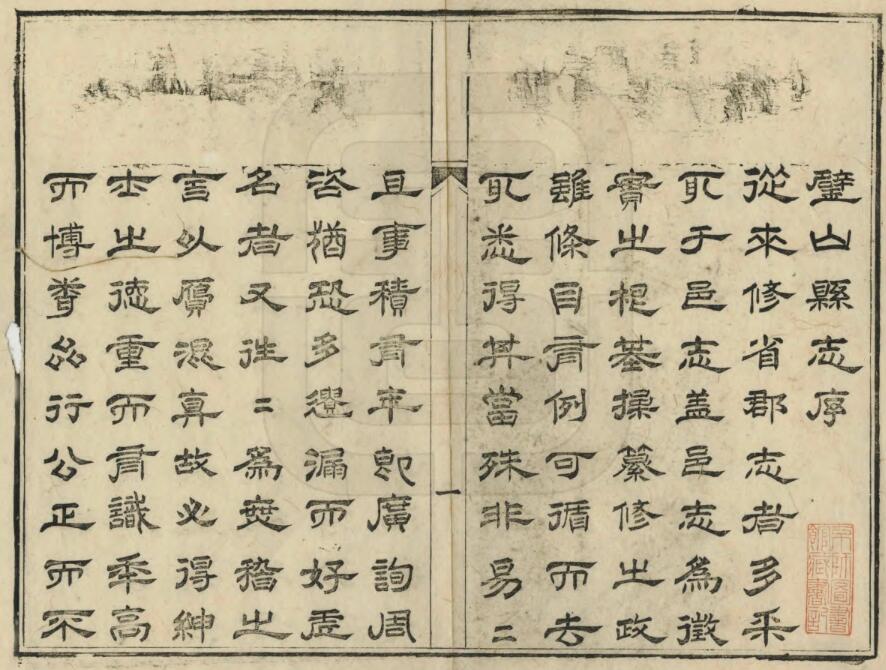 璧山縣志序
從來修省郡志者多采
取于邑志盖邑志為徵
實之根基操纂修之政
雖條目有例可循而去
取悉得其當殊非易二
一
且事積有年即廣詢周
咨猶恐多遺漏而好虛
名者又往二為無稽之
言以贋混真故必得紳
士之德重而有識年高
而博品行公正而不